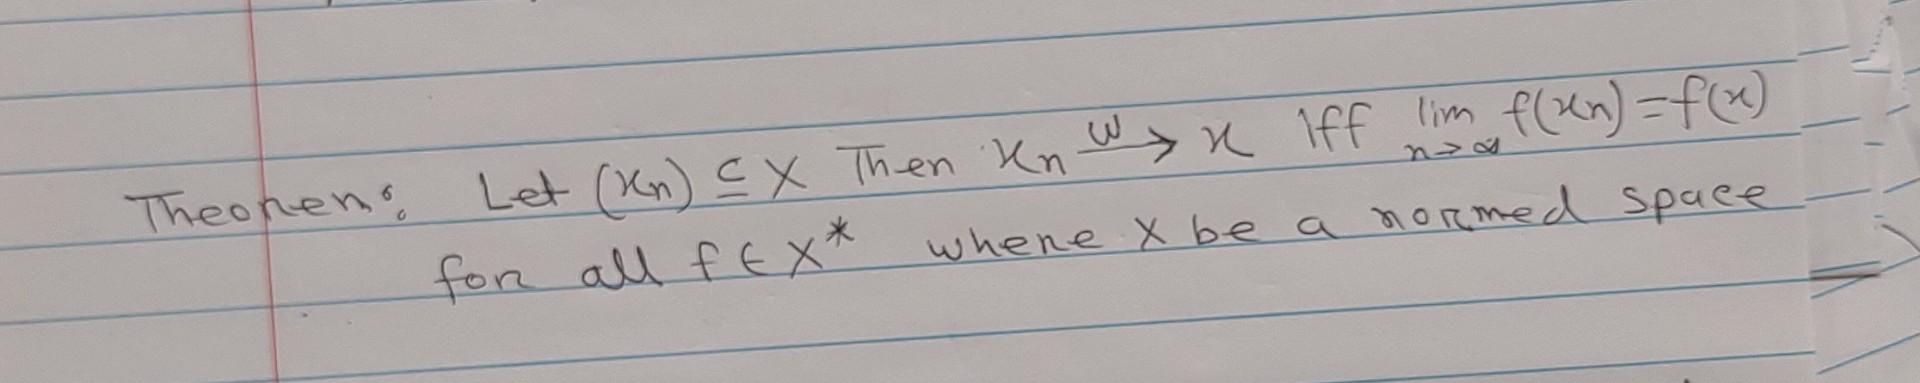 Theorem: Let (xn) ⊆ X Then xn —w→ x Iff lim n→∞ f(xn) = f(x)
for all f ∈ X* where X be a normed space